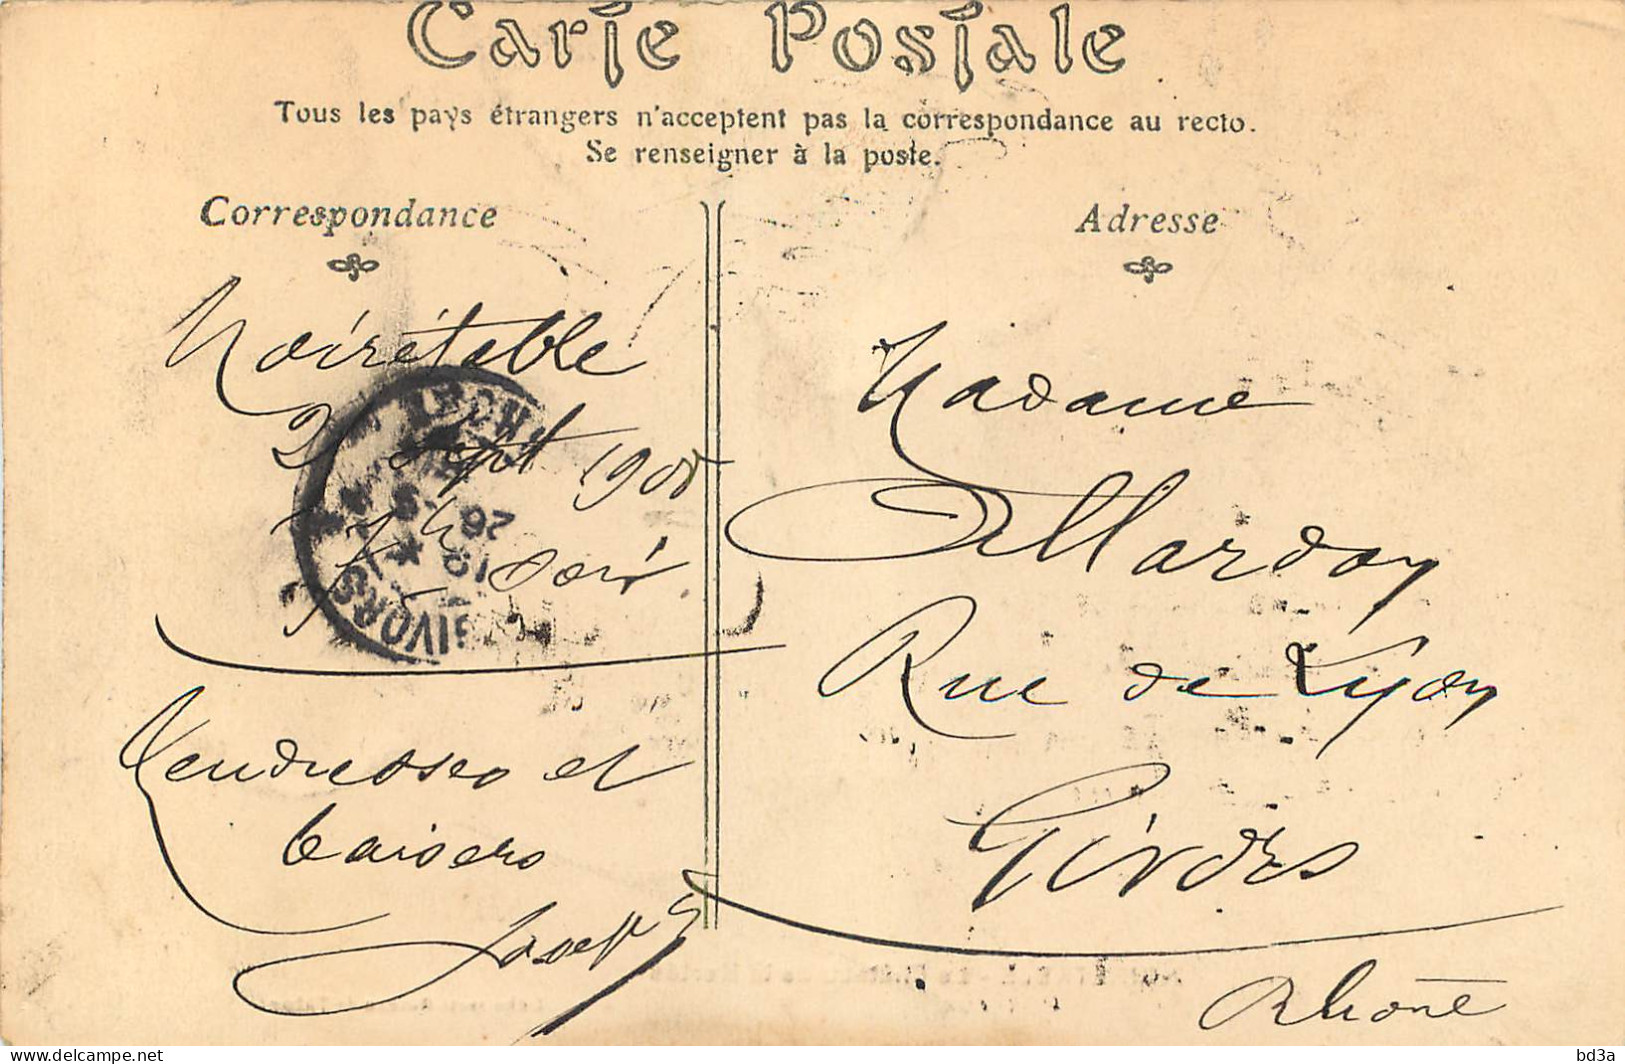 Carte Postale
Tous les pays étrangers n'acceptent pas la correspondance au recto.
Se renseigner à la poste.
Correspondance
Noirétable
2 Sept 190
soir
Tendresses et
baisers
Joseph
Adresse
Madame
Allardon
Rue de Lyon
Givors
Rhône
GIVORS
RHÔNE
18
26 -9
bd3a